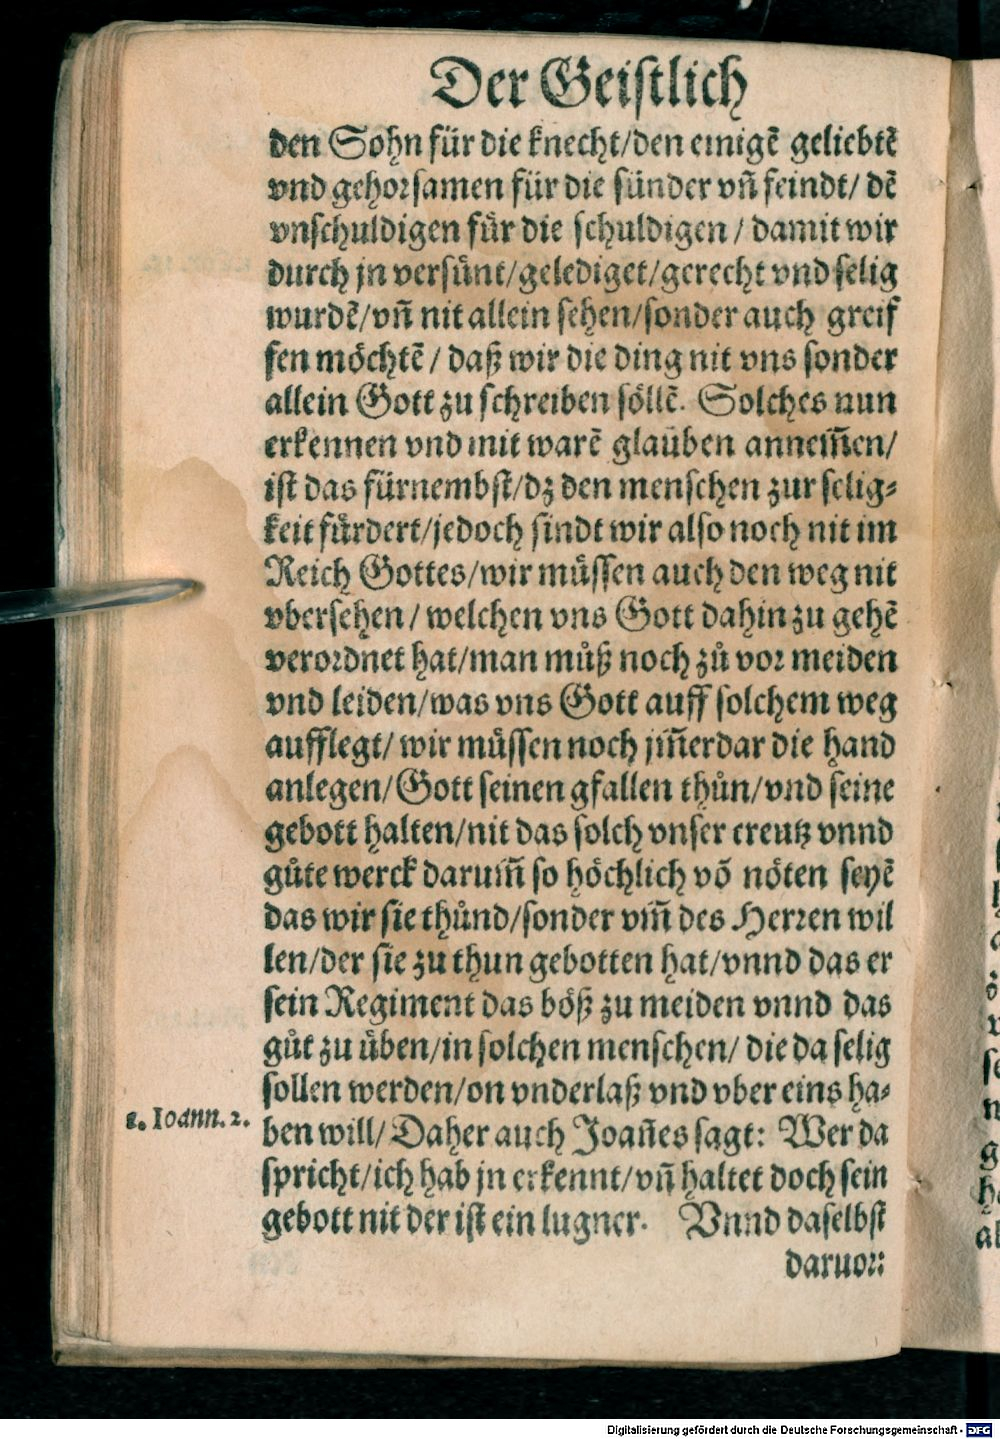 Der Geistlich
den Sohn für die knecht/den einigẽ geliebtẽ
vnd gehorsamen für die sünder vñ feindt/ dẽ
vnschuldigen fůr die schuldigen / damit wir
durch jn versůnt/gelediget/gerecht vnd selig
wurdẽ/vñ nit allein sehen/sonder auch greif
fen möchtẽ / daß wir die ding nit vns sonder
allein Gott zu schreiben söllẽ. Solches nun
erkennen vnd mit warẽ glauben annem̃en/
ist das fürnembst/dz den menschen zur selig⸗
keit fůrdert/jedoch sindt wir also noch nit im
Reich Gottes/wir můssen auch den weg nit
vbersehen / welchen vns Gott dahin zu gehẽ
verordnet hat/man můß noch zů vor meiden
vnd leiden/was vns Gott auff solchem weg
aufflegt/ wir můssen noch jm̃erdar die hand
anlegen/Gott seinen gfallen thůn/vnd seine
gebott halten/nit das solch vnser creutz vnnd
gůte werck darum̃ so höchlich võ nöten seyẽ
das wir sie thůnd/sonder vm̃ des Herren wil
len/der sie zu thun gebotten hat/vnnd das er
sein Regiment das böß zu meiden vnnd das
gůt zu ůben/in solchen menschen/ die da selig
sollen werden/on vnderlaß vnd vber eins ha⸗
1. Ioann. 2.
ben will/ Daher auch Joañes sagt: Wer da
spricht/ich hab jn erkennt/vñ haltet doch sein
gebott nit der ist ein lugner. Vnnd daselbst
daruor:
Digitalisierung gefördert durch die Deutsche Forschungsgemeinschaft - DFG